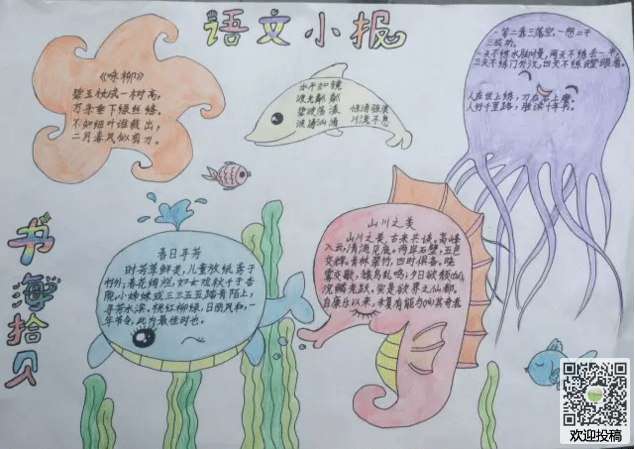 语文小报
《咏柳》
碧玉妆成一树高,
万条垂下绿丝绦。
不知细叶谁裁出,
二月春风似剪刀。
水平如镜
波光粼粼
碧波荡漾
波涛汹涌
川流不息
一等二靠三落空,一想二干
三成功。
一天不练手脚慢,两天不练丢一半,
三天不练门外汉,四天不练瞪眼看。
人在世上练,刀在石上磨。
人行千里路,胜读十年书。
书海拾贝
春日寻芳
时芳草鲜美,儿童放纸鸢于
村外;春花绚烂,如女戏秋千于杏
院,小姊妹或三三五五踏青陌上,
寻芳水滨。桃红柳绿,日丽风和,一
年节令,此为最佳时也。
山川之美
山川之美,古来共谈。高峰
入云,清流见底。两岸石壁,五色
交辉。青林翠竹,四时俱备。晓
雾将歇,猿鸟乱鸣;夕日欲颓,
沉鳞竞跃。实是欲界之仙都,
自康乐以来,未复有能与其奇者
欢迎投稿